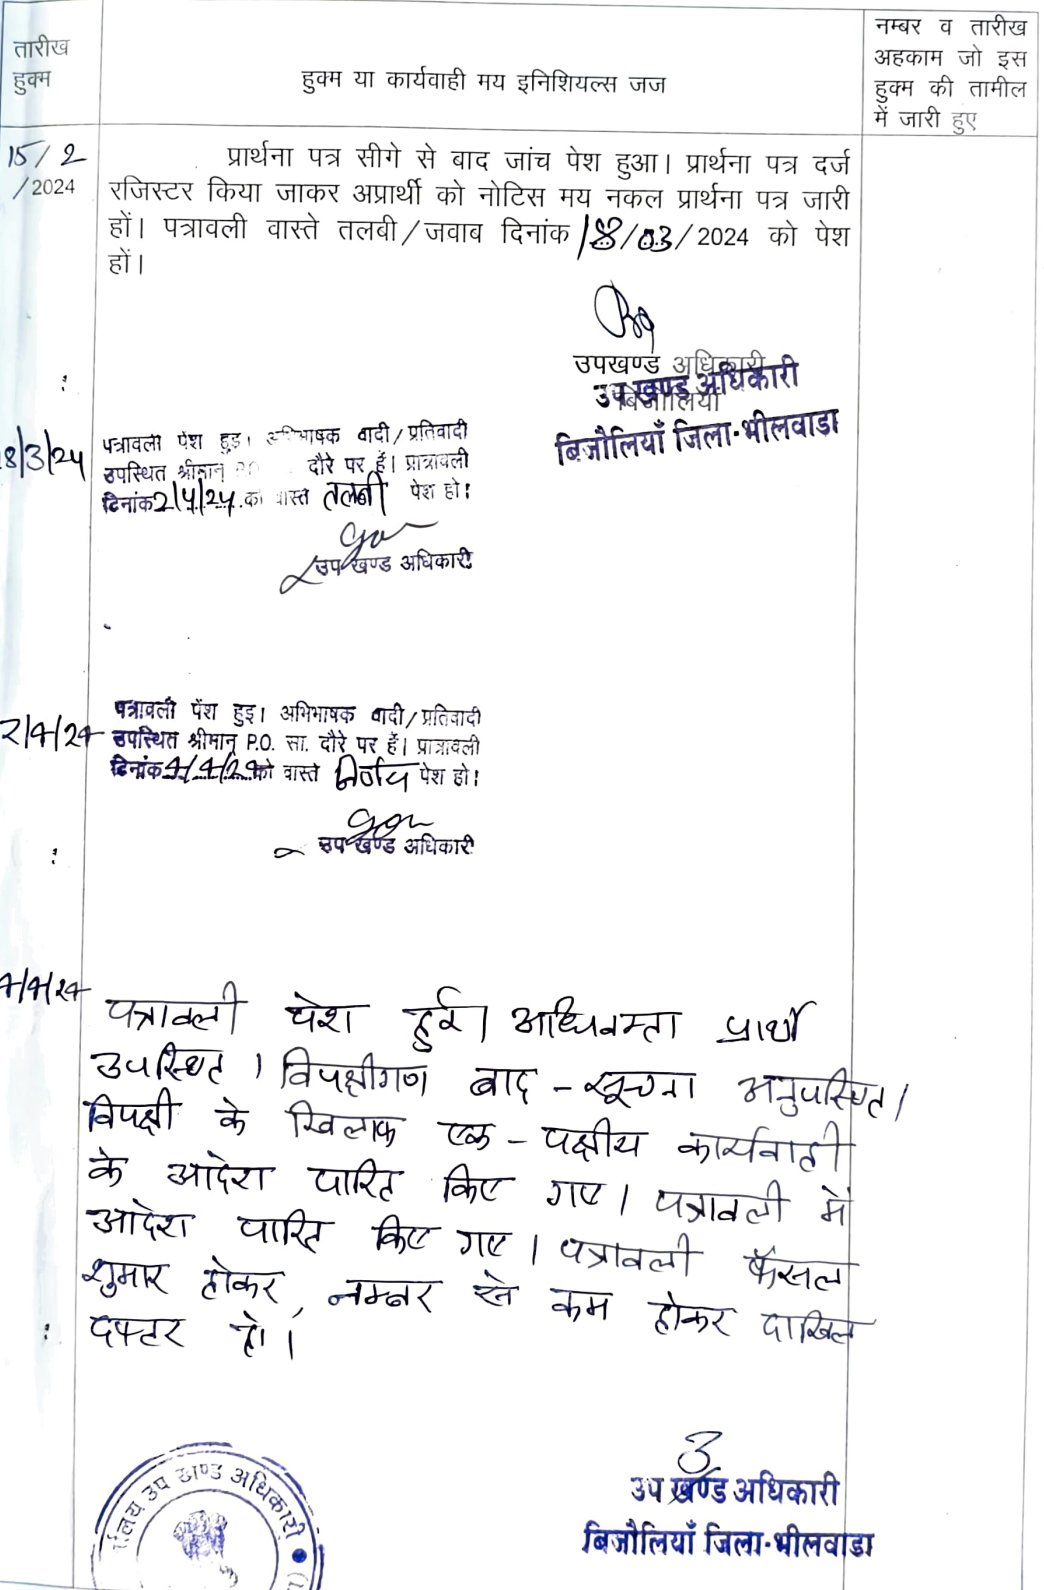 तारीख
हुक्म
हुक्म या कार्यवाही मय इनिशियल्स जज
नम्बर व तारीख
अहकाम जो इस
हुक्म की तामील
में जारी हुए
15/2
/2024
प्रार्थना पत्र सीगे से बाद जांच पेश हुआ। प्रार्थना पत्र दर्ज
रजिस्टर किया जाकर अप्रार्थी को नोटिस मय नकल प्रार्थना पत्र जारी
हों। पत्रावली वास्ते तलबी/जवाब दिनांक 18/03/2024 को पेश
हों।
उपखण्ड अधिकारी
बिजौलियां
उप खण्ड अधिकारी
बिजौलियाँ जिला-भीलवाडा
8/3/24
पत्रावली पेश हुइ। अभिभाषक वादी/प्रतिवादी
उपस्थित श्रीमान् दौरे पर हैं। प्रात्रावली
दिनांक 2/4/24 को वास्ते तलबी पेश हो।
उप खण्ड अधिकारी
2/4/24
पत्रावली पेंश हुइ। अभिभाषक वादी/प्रतिवादी
उपस्थित श्रीमान् P.O. सा. दौरे पर हैं। प्रात्रावली
दिनांक 4/4/24 को वास्ते निर्णय पेश हो।
उप खण्ड अधिकारी
4/4/24
पत्रावली पेश हुई। अधिवक्ता प्रार्थी
उपस्थित। विपक्षीगण बाद - सूचना अनुपस्थित।
विपक्षी के खिलाफ एक - पक्षीय कार्यवाही
के आदेश पारित किए गए। पत्रावली में
आदेश पारित किए गए। पत्रावली फैसल
शुमार होकर, नम्बर से कम होकर दाखिल
दफ्तर हो।
उप खण्ड अधिकारी
बिजौलियाँ जिला-भीलवाडा
र्यालय उप खण्ड अधिकारी